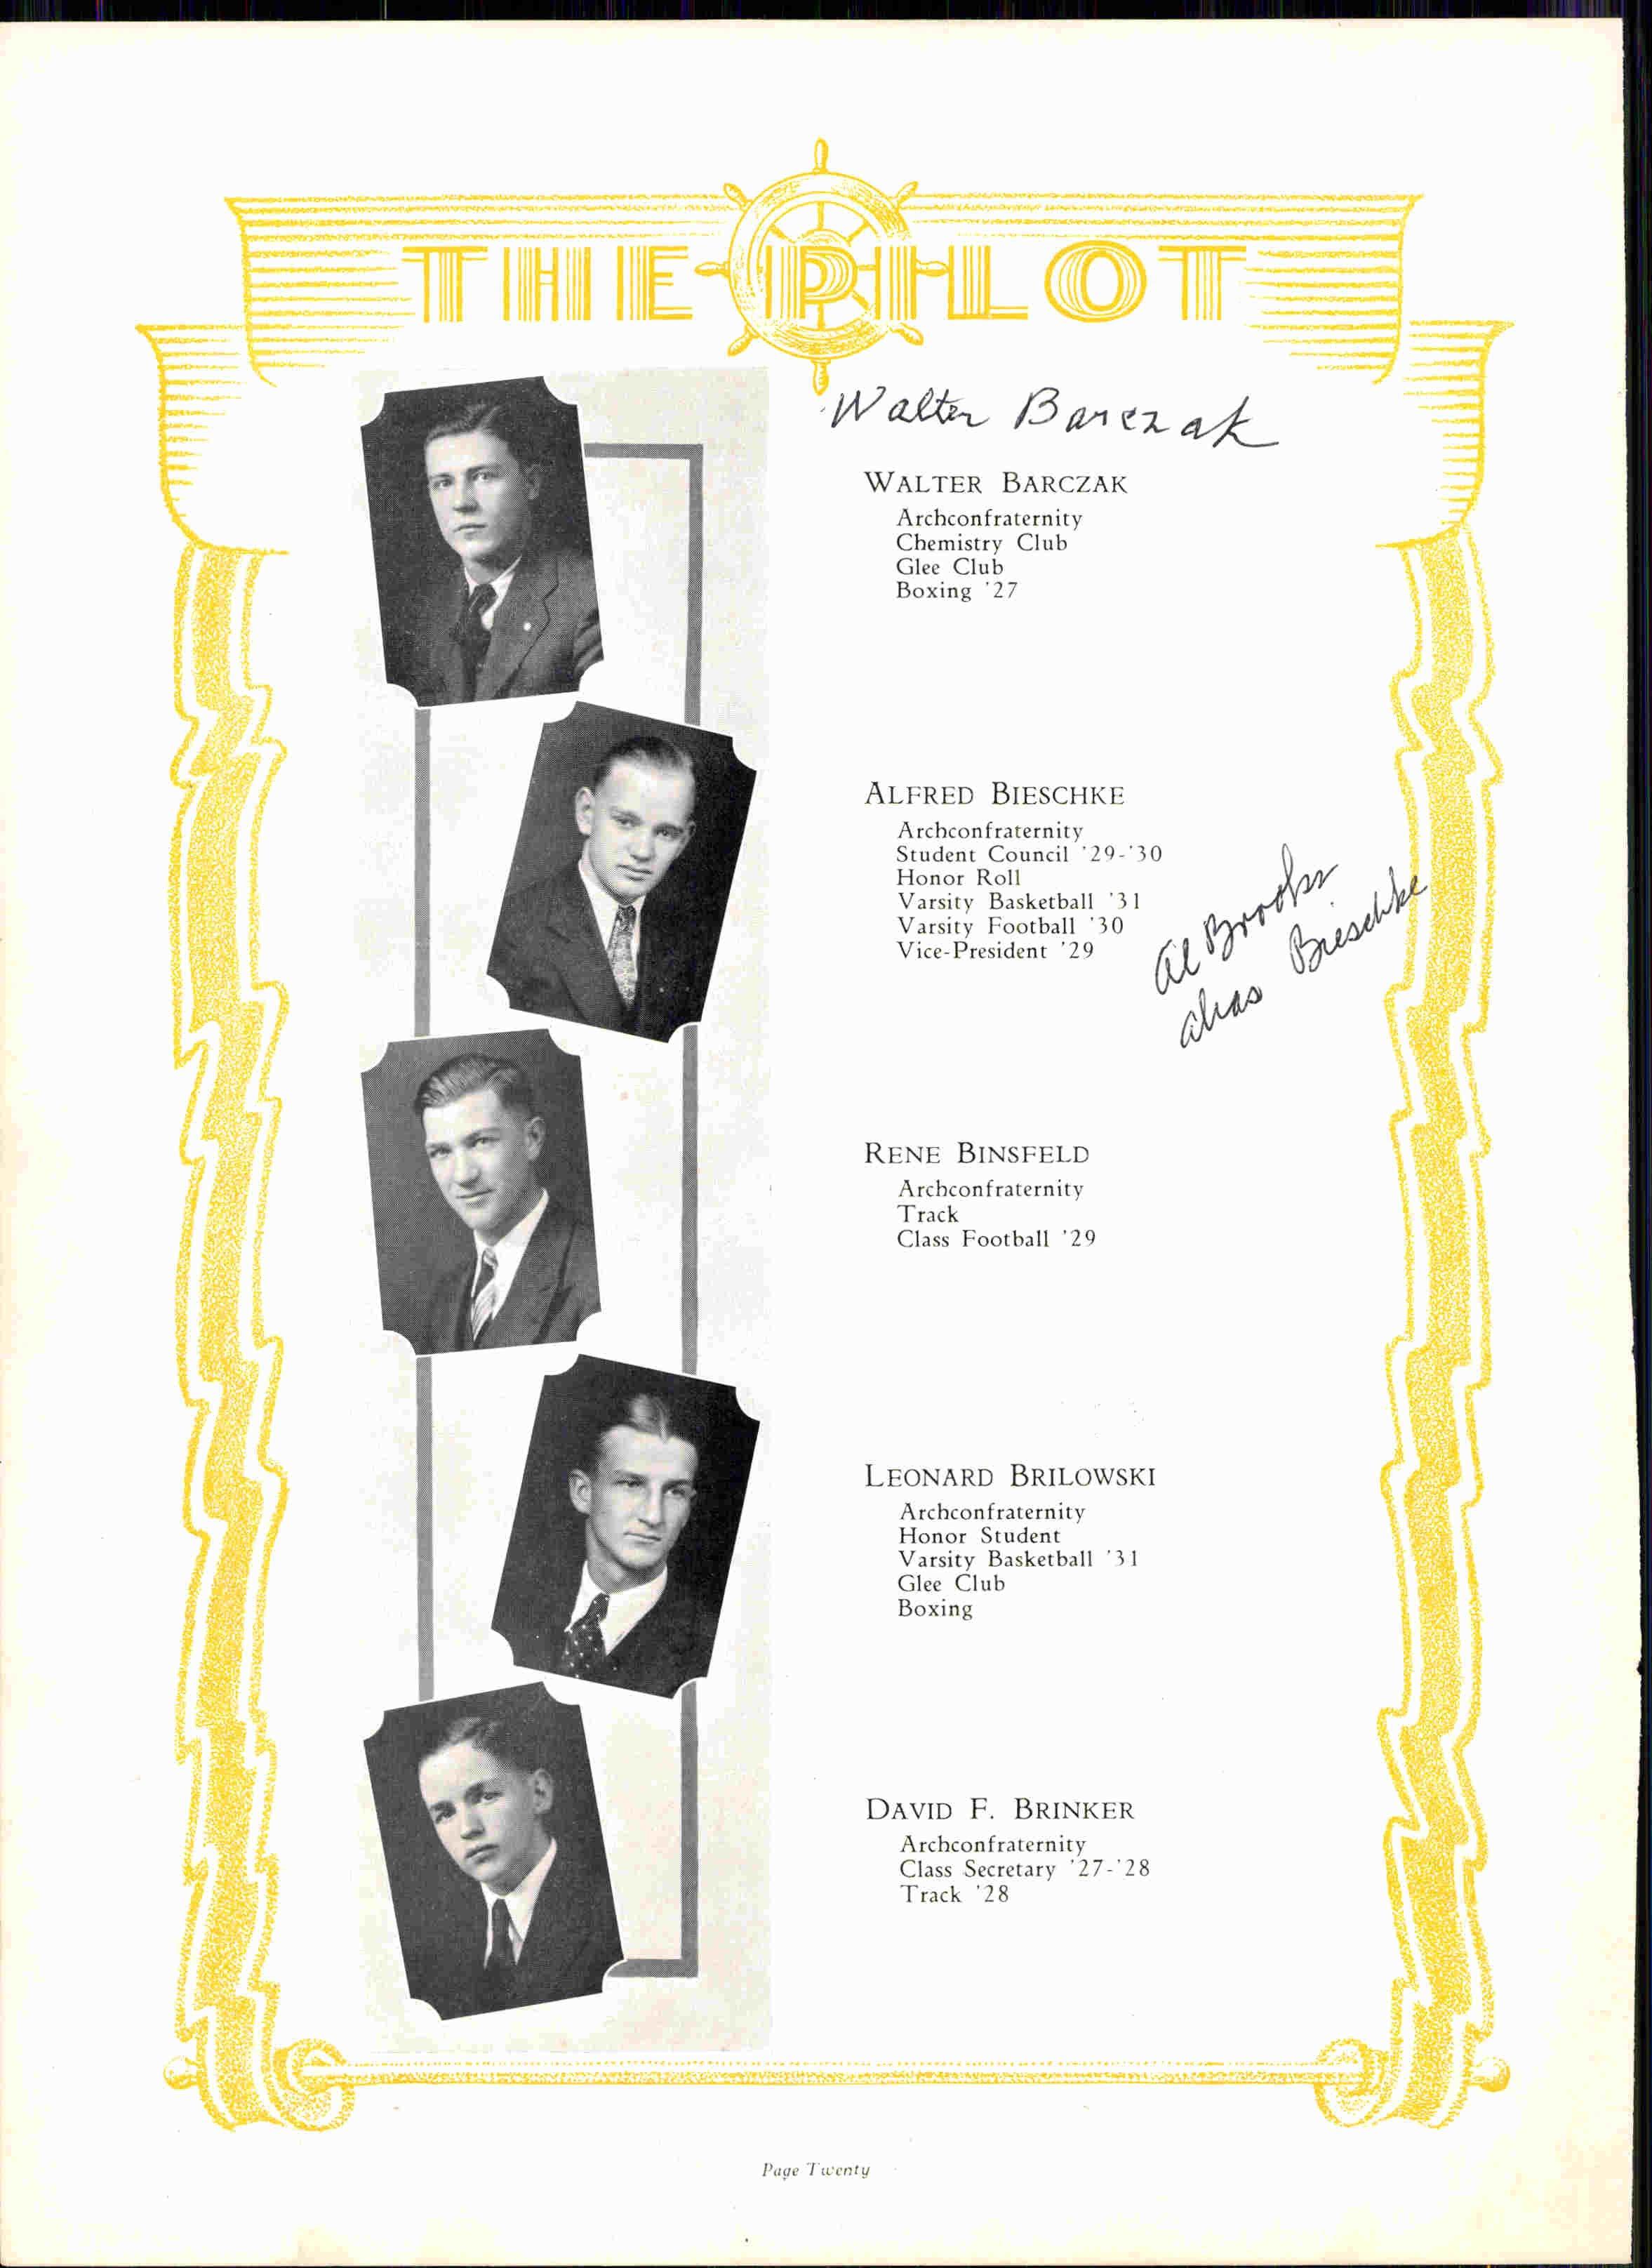 THE PILOT
Walter Barczak
WALTER BARCZAK
Archconfraternity
Chemistry Club
Glee Club
Boxing '27
ALFRED BIESCHKE
Archconfraternity
Student Council '29-'30
Honor Roll
Varsity Basketball '31
Varsity Football '30
Vice-President '29
Al Brooks
alias Bieschke
RENE BINSFELD
Archconfraternity
Track
Class Football '29
LEONARD BRILOWSKI
Archconfraternity
Honor Student
Varsity Basketball '31
Glee Club
Boxing
DAVID F. BRINKER
Archconfraternity
Class Secretary '27-'28
Track '28
Page Twenty